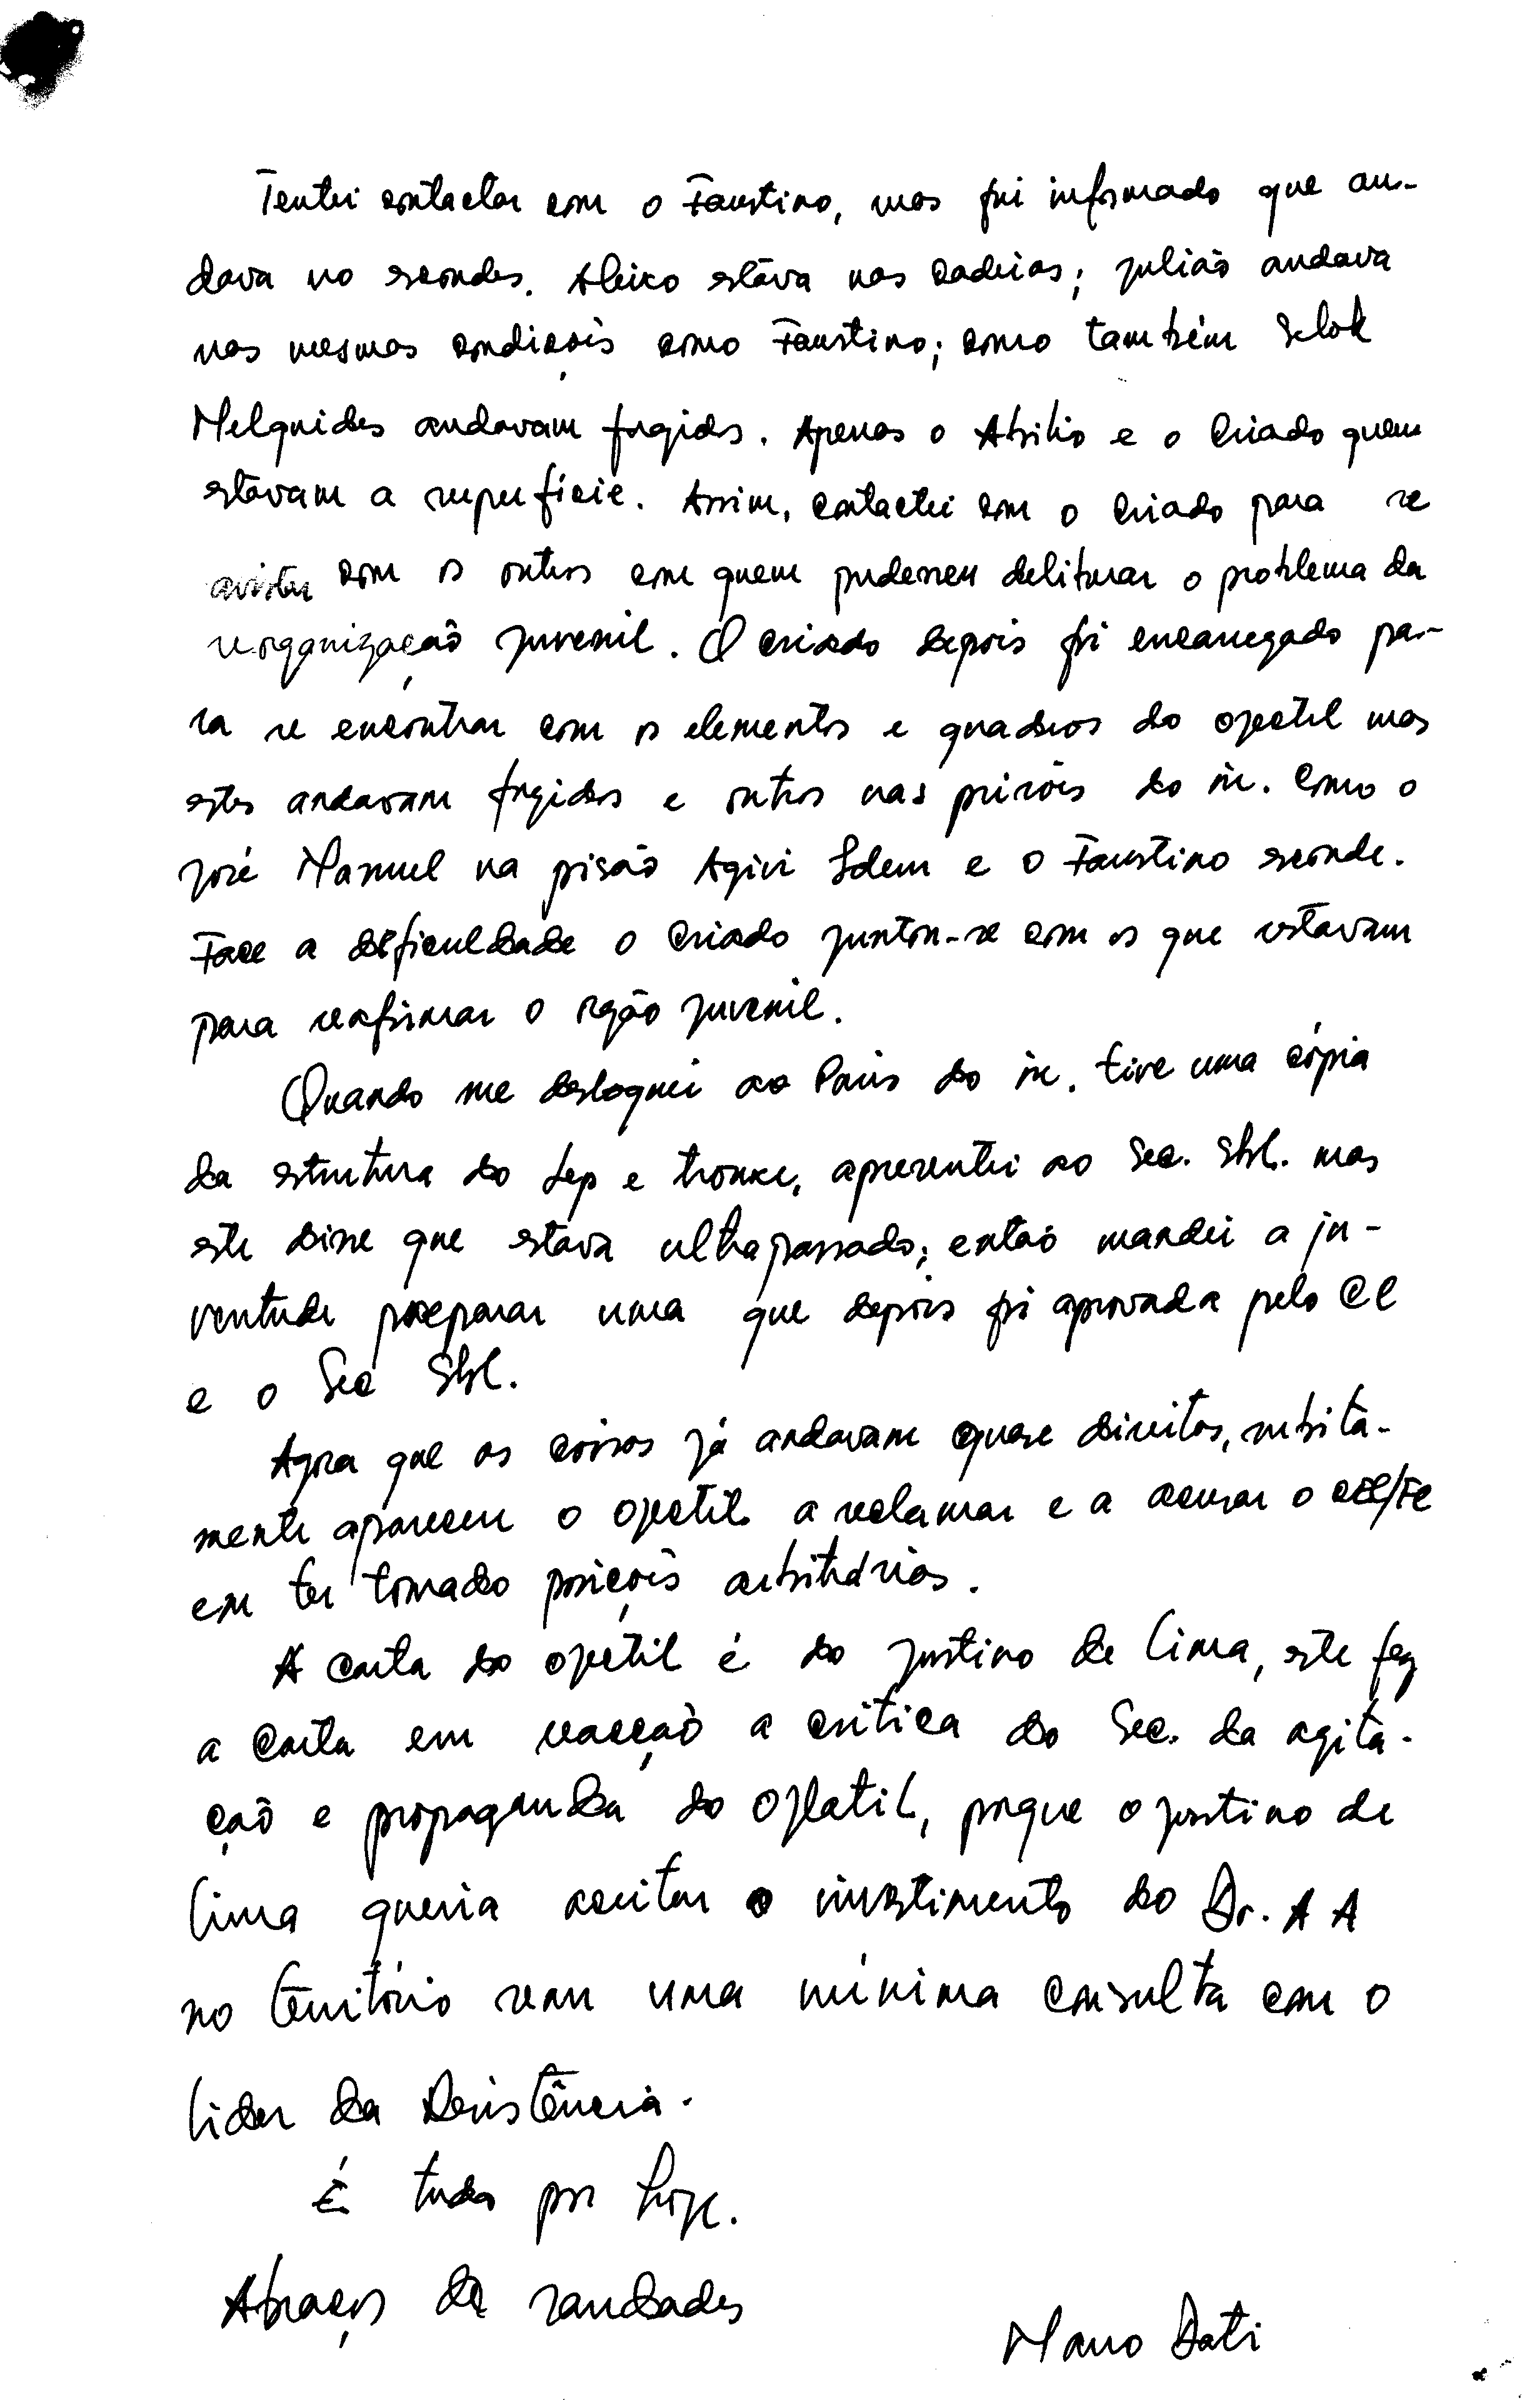 Tentei contactar com o Faustino, mas fui informado que an-
dava no escondes. Aleixo estáva nas cadeias; julião andava
nas mesmas condições como Faustino; como também Selok
Melquides andavam fugidos. Apenas o Abilio e o Criado quem
estávam a superfície. Assim, contactei com o Criado para se
avistar com os outros com quem pudessem deliberar o problema da
reorganização juvenil. O Criado depois foi encarregado pa-
ra se encontrar com os elementos e quadros do ojectil mas
estes andavam fugidos e outros nas prisões do in. Como o
José Manuel na pisão Agivi Idem e o Faustino esconde.
Face a dificuldade o Criado juntou-se com os que estavam
para reafirmar o orgão juvenil.
Quando me desloquei ao País do in. tive uma cópia
da estrutura do Lep e trouxe, apresentei ao Sec. Sbl. mas
este disse que estava ultrapassado; então mandei a ju-
ventude preparar uma que depois foi aprovada pelo CC
e o Sec Sbl.
Agora que as coisas já andavam quase direitas, subita-
mente apareceu o ojectil a reclamar e a acusar o CEL/FC
em ter tomado posições arbitrárias.
A carta do ojetil é do justino de Lima, este fez
a carta em reacção a crítica do Sec. da agita-
ção e propaganda do Ojlatil, porque o justino de
Lima queria aceitar o investimento do Dr. A A
no território sem uma mínima consulta com o
lider da Resistência.
É tudo por hoje.
Abraços de saudades
Mano Dati